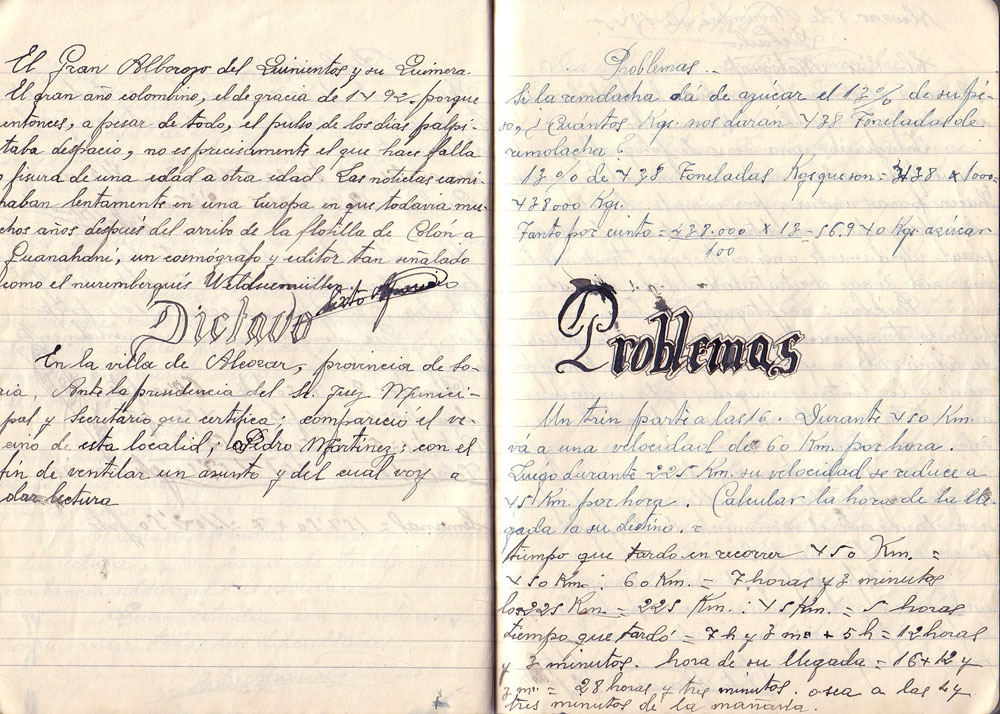 El Gran Alborozo del Quinientos y su Quimera.
El gran año colombino, el de gracia de 1492. porque
entonces, a pesar de todo, el pulso de los dias palpi-
taba despacio, no es precisamente el que hace falla
o fisura de una edad a otra edad. Las noticias cami-
naban lentamente en una Europa en que todavia mu-
chos años después del arribo de la flotilla de Colón a
Guanahani, un cosmografo y editor tan señalado
como el nuremberguis
Dictado
En la villa de Alcozar, provincia de So-
ria. Ante la presidencia del Sr. Juez Munici-
pal y Secretario que certifica; compareció el ve-
cino de esta localid; Pedro Martinez; con el
fin de ventilar un asunto y del cual voy a
dar lectura
Problemas.
Si la remolacha dá de azúcar el 13% de su pe-
so, ¿Cuántos Kgs. nos daran 438 Toneladas de
remolacha?
13% de 438 Toneladas Kgs que son = 438 x 1000=
438000 Kgs.
Tanto por ciento = 438.000 X 13 = 56.940 Kgs. azúcar
100
Problemas
Un trin parte a las 16. Durante 450 Km.
vá a una velocidad de 60 Km. por hora.
Luego durante 225 Km. su velocidad se reduce a
45 Km. por hora. Calcular la hora de la lle
gada a su destino.
tiempo que tardo en recorrer 450 Km. =
450 Km : 60 Km. = 7 horas y 3 minutos
los 225 Km. = 225 Km. : 45 Km. = 5 horas
tiempo que tardó = 7 h y 3 m. + 5 h = 12 horas
y 3 minutos. hora de su llegada = 16+12 y
3 m. = 28 horas y tres minutos. o sea a las 4 y
tres minutos de la mañana.